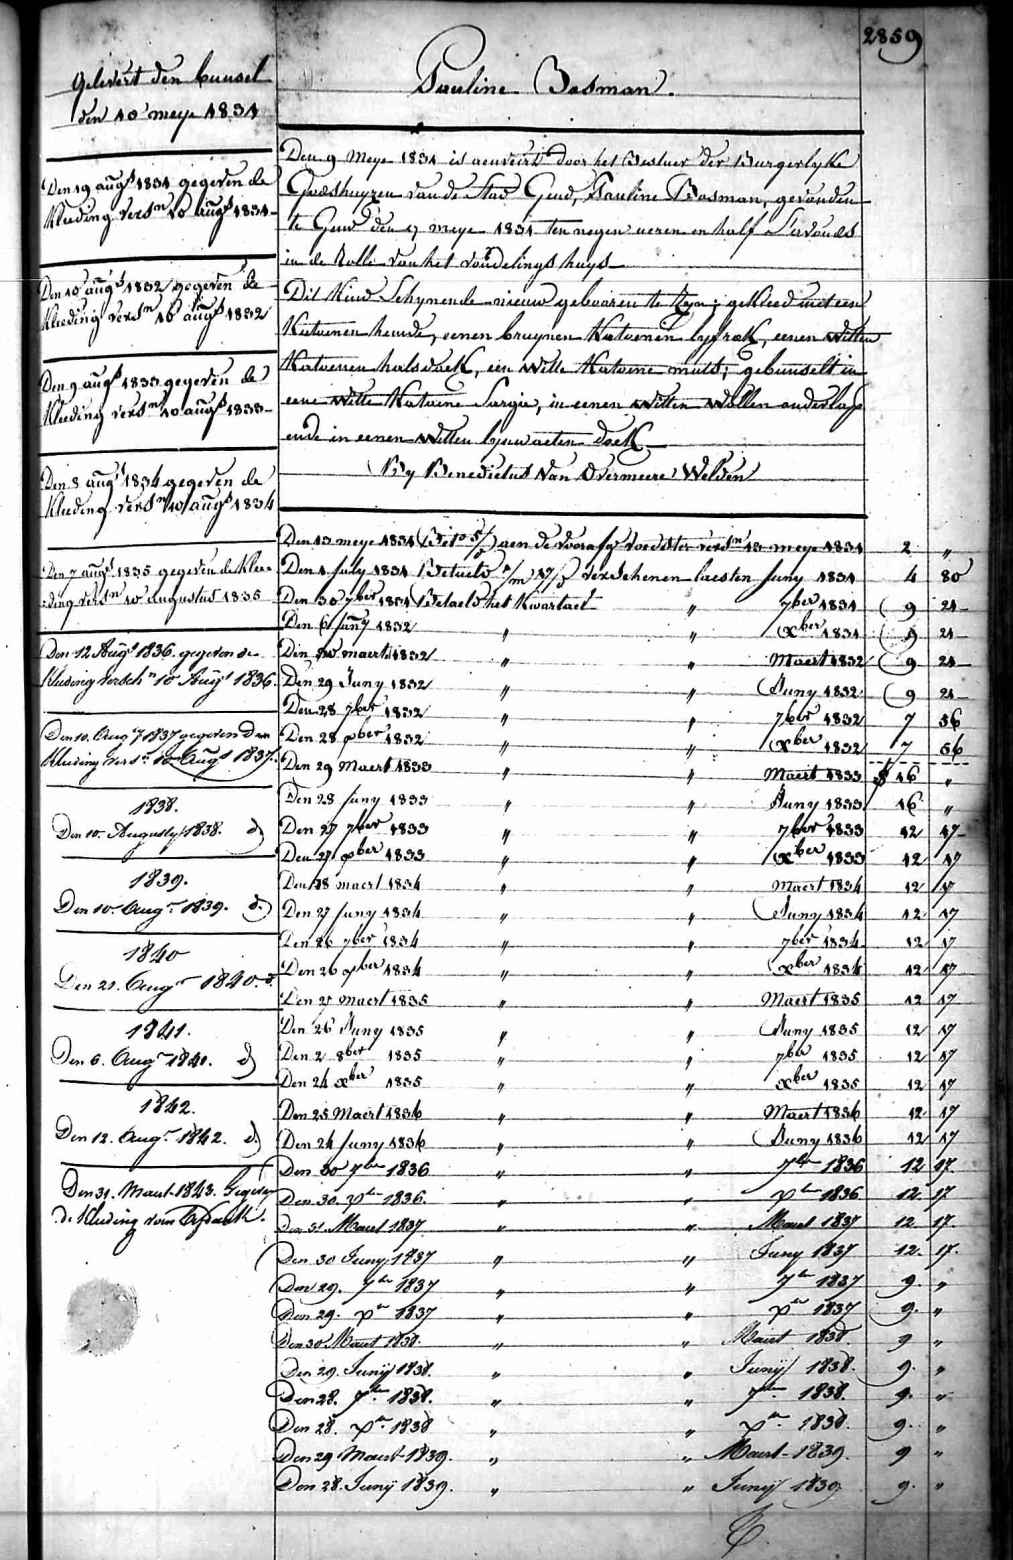 2859
Pauline Bosman.
Gelevert den bunsel
den 10 meye 1831
Den 19 augt 1831 gegeven de
kleeding versn 10 augt 1831
Den 10 augt 1832 gegeven de
kleeding versn 10 augt 1832
Den 9 augt 1833 gegeven de
kleeding versn 10 augt 1833
Den 8 augt 1834 gegeven de
kleeding versn 10 augt 1834
Den 7 augt 1835 gegeven de klee-
ding versn 10 augustus 1835
Den 12 Augt 1836 gegeven de
kleeding versch n 10 Augt 1836.
Den 10. Augt 1837 gegeven den
kleeding versn 10 Augt 1837.
1838.
Den 10. Augusty 1838. d)
1839.
Den 10. Augt 1839. d.)
1840
Den 21. Augt 1840. d.
1841.
Den 6. Augt 1841. d)
1842.
Den 12. Augt 1842. d)
Den 31. Maert 1843. Gegeven
de kleeding voor
Den 9 Meye 1831 is aenveird door het Bestuer der Burgerlyke
Godshuyzen van de Stad Gend, Pauline Bosman, gevonden
te Gend den 7 meye 1831 ten negen ueren en half s'avonds
in de Rolle van het vondelings huys
Dit Kind Schynende nieuw gebooren te zyn; gekleed met een
Katoenen hemde, eenen bruynen Katoenen lyfrok, eenen witten
Katoenen halsdoek, een witte Katoene muts; gebunselt in
eene witte Katoene Sargie, in eenen witten wollen onderlap
ende in eenen witten lynwaeten doek
By Benedictus Van Overmeere Welden
Den 13 meye 1831 aen de voorafg voedster versn 13 meye 1831 2 "
Den 1 July 1831 Betaeld verschenen laesten Juny 1831 4 80
Den 30 7ber 1831 Betaeld het Kwartael " 7ber 1831 9 21
Den 6 Jany 1832 " " xber 1831 9 21
Den 30 maert 1832 " " Maert 1832 9 21
Den 29 Juny 1832 " " Juny 1832 9 21
Den 28 7ber 1832 " " 7ber 1832 7 56
Den 28 xber 1832 " " xber 1832 7 56
Den 29 Maert 1833 " " Maert 1833 16 "
Den 28 Juny 1833 " " Juny 1833 16 "
Den 27 7ber 1833 " " 7ber 1833 12 17
Den 27 xber 1833 " " xber 1833 12 17
Den 28 maert 1834 " " Maert 1834 12 17
Den 27 Juny 1834 " " Juny 1834 12 17
Den 26 7ber 1834 " " 7ber 1834 12 17
Den 26 xber 1834 " " xber 1834 12 17
Den 27 maert 1835 " " Maert 1835 12 17
Den 26 Juny 1835 " " Juny 1835 12 17
Den 2 8ber 1835 " " 7ber 1835 12 17
Den 24 xber 1835 " " xber 1835 12 17
Den 25 Maert 1836 " " Maert 1836 12 17
Den 24 Juny 1836 " " Juny 1836 12 17
Den 30 7ber 1836 " " 7ber 1836 12 17
Den 30. xber 1836. " " xber 1836 12. 17
Den 31 Maert 1837 " " Maert 1837 12 17.
Den 30 Juny 1837 " " Juny 1837 12. 17.
Den 29. 7ber 1837 " " 7ber 1837 9. "
Den 29. xber 1837 " " xber 1837 9. "
Den 30 Maert 1838. " " Maert 1838. 9 "
Den 29. Junij 1838. " " Junij 1838. 9. "
Den 28. 7ber 1838. " " 7ber 1838. 9. "
Den 28. xber 1838 " " xber 1838. 9. "
Den 29 Maert 1839. " " Maert 1839. 9 "
Den 28. Junij 1839. " " Junij 1839 9. "